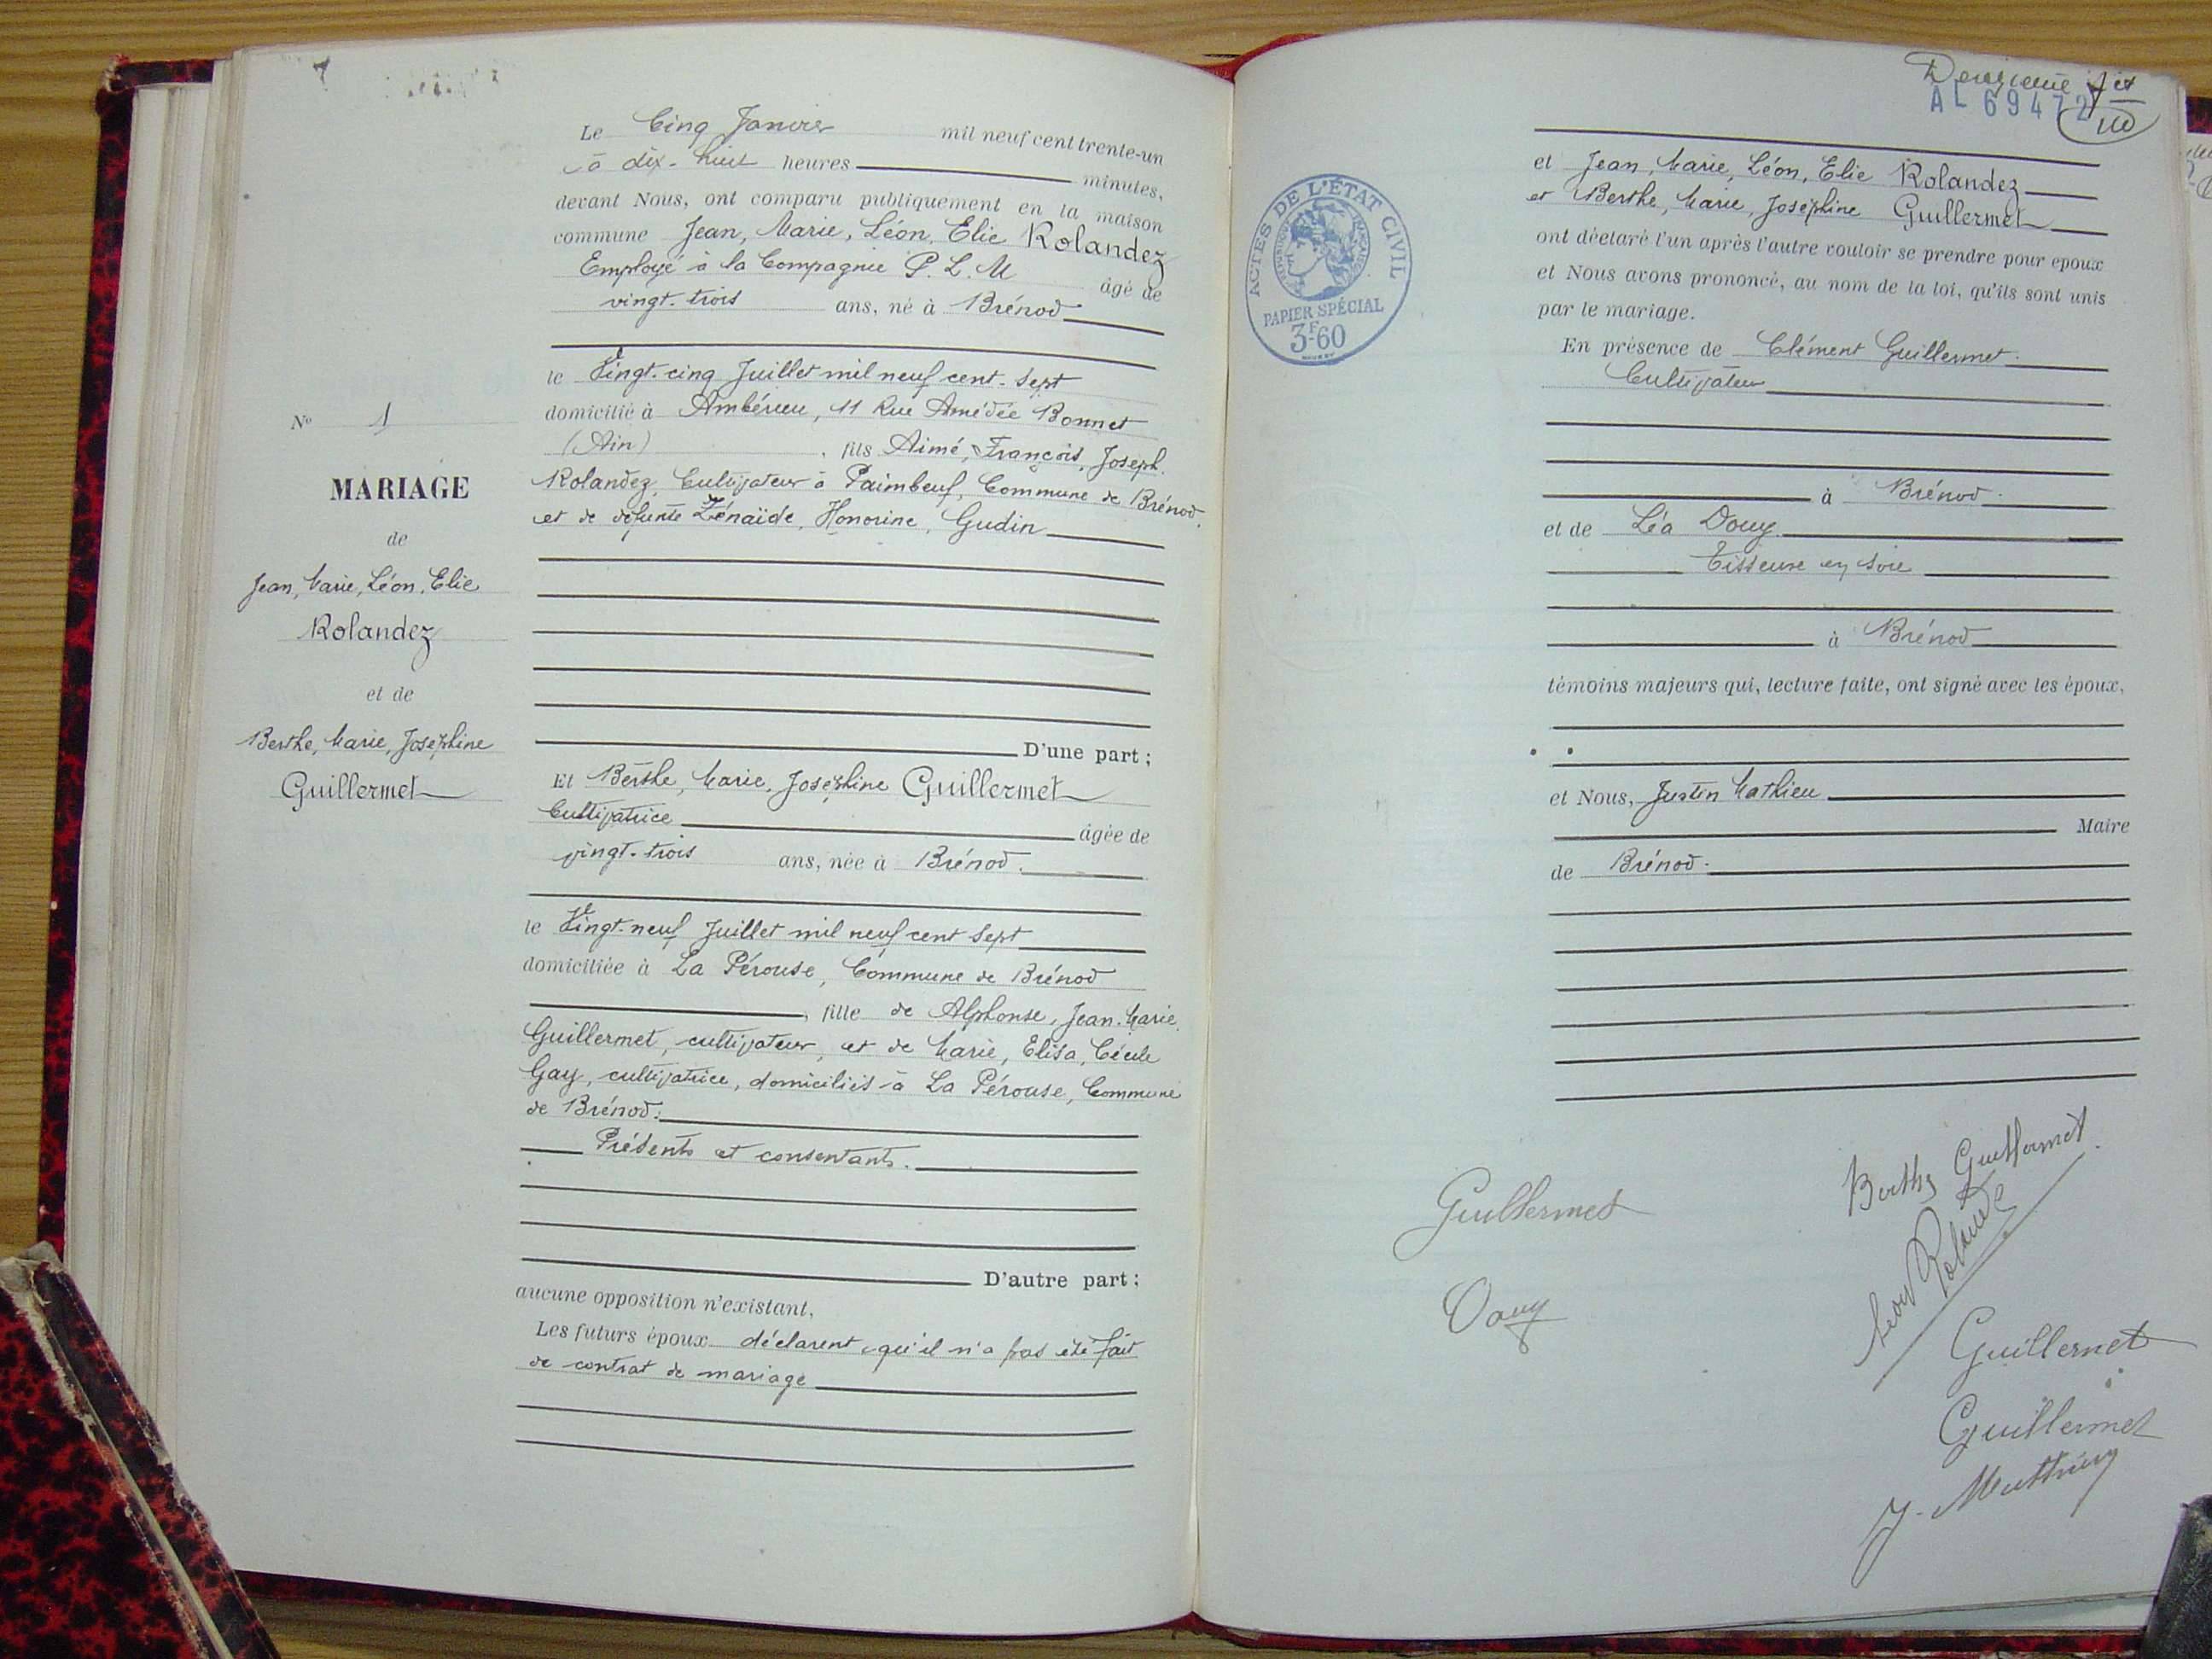 Le Cinq Janvier mil neuf cent trente-un
à dix-huit heures minutes,
devant Nous, ont comparu publiquement en la maison
commune Jean, Marie, Léon, Elie Rolandez
Employé à la Compagnie P. L. M âgé de
vingt-trois ans, né à Brénod
le Vingt-cinq Juillet mil neuf cent-sept
domicilié à Ambérieu, 11 Rue Amédée Bonnet
(Ain), fils Aimé, François, Joseph.
Rolandez, Cultivateur à Paimbeuf, Commune de Brénod.
et de défunte Zénaïde, Honorine, Gudin
D'une part;
Et Berthe, Marie, Joséphine Guillermet
Cultivatrice âgée de
vingt-trois ans, née à Brénod.
le Vingt-neuf Juillet mil neuf cent sept
domiciliée à La Pérouse, Commune de Brénod
, fille de Alphonse, Jean-Marie,
Guillermet, cultivateur, et de Marie, Elisa, Cécile
Gay, cultivatrice, domiciliés à La Pérouse, Commune
de Brénod.
Présents et consentants.
D'autre part;
aucune opposition n'existant,
Les futurs époux déclarent qu'il n'a pas été fait
de contrat de mariage
No 1
MARIAGE
de
Jean, Marie, Léon, Elie
Rolandez
et de
Berthe, Marie, Joséphine
Guillermet
Deuxième
AL 69472
ACTES DE L'ÉTAT CIVIL
PAPIER SPÉCIAL
3F60
et Jean, Marie, Léon, Elie Rolandez
et Berthe, Marie, Joséphine Guillermet
ont déclaré l'un après l'autre vouloir se prendre pour époux
et Nous avons prononcé, au nom de la loi, qu'ils sont unis
par le mariage.
En présence de Clément Guillermet.
Cultivateur
à Brénod.
et de Léa Douy
Tisseuse en soie
à Brénod
témoins majeurs qui, lecture faite, ont signé avec les époux,
et Nous, Justin Mathieu
Maire
de Brénod.
Berthe Guillermet
Guillermet
Léon Rolandez
Douy
Guillermet
Guillermet
J. Mathieu